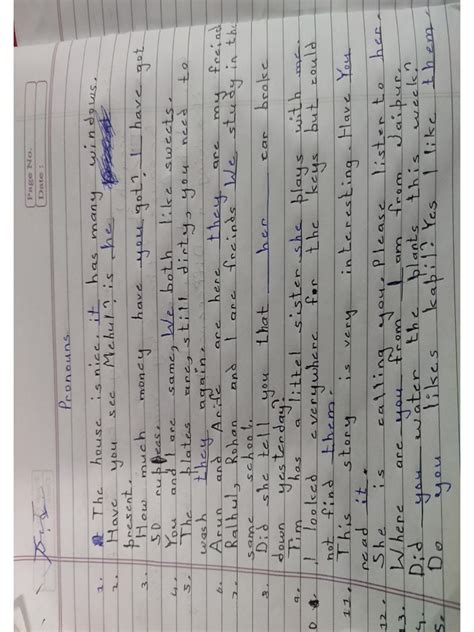 Page No.
Date:
Pronouns.
1. The house is nice. it has many windows.
2. Have you see Mehul? is he
present.
3. How much money have you got? I have got
50 rupees.
4. You and I are same, We both like sweets.
5. The plates are, still dirty, you need to
wash they again.
6. Arun and Arife are here they are my freind
7. Ralhul, Rohan and I are freinds We study in the
same school.
8. Did she tell you that her car broke
down yesterday?
9. Tim has a littel sister she plays with me.
0. I looked everywhere for the keys but could
not find them.
11. This story is very interesting. Have You
read it.
12. She is calling you. Please listen to her.
13. Where are you from I am from Jaipur.
4. Did you water the plants this week?
5. Do you likes kapil? Yes I like them.